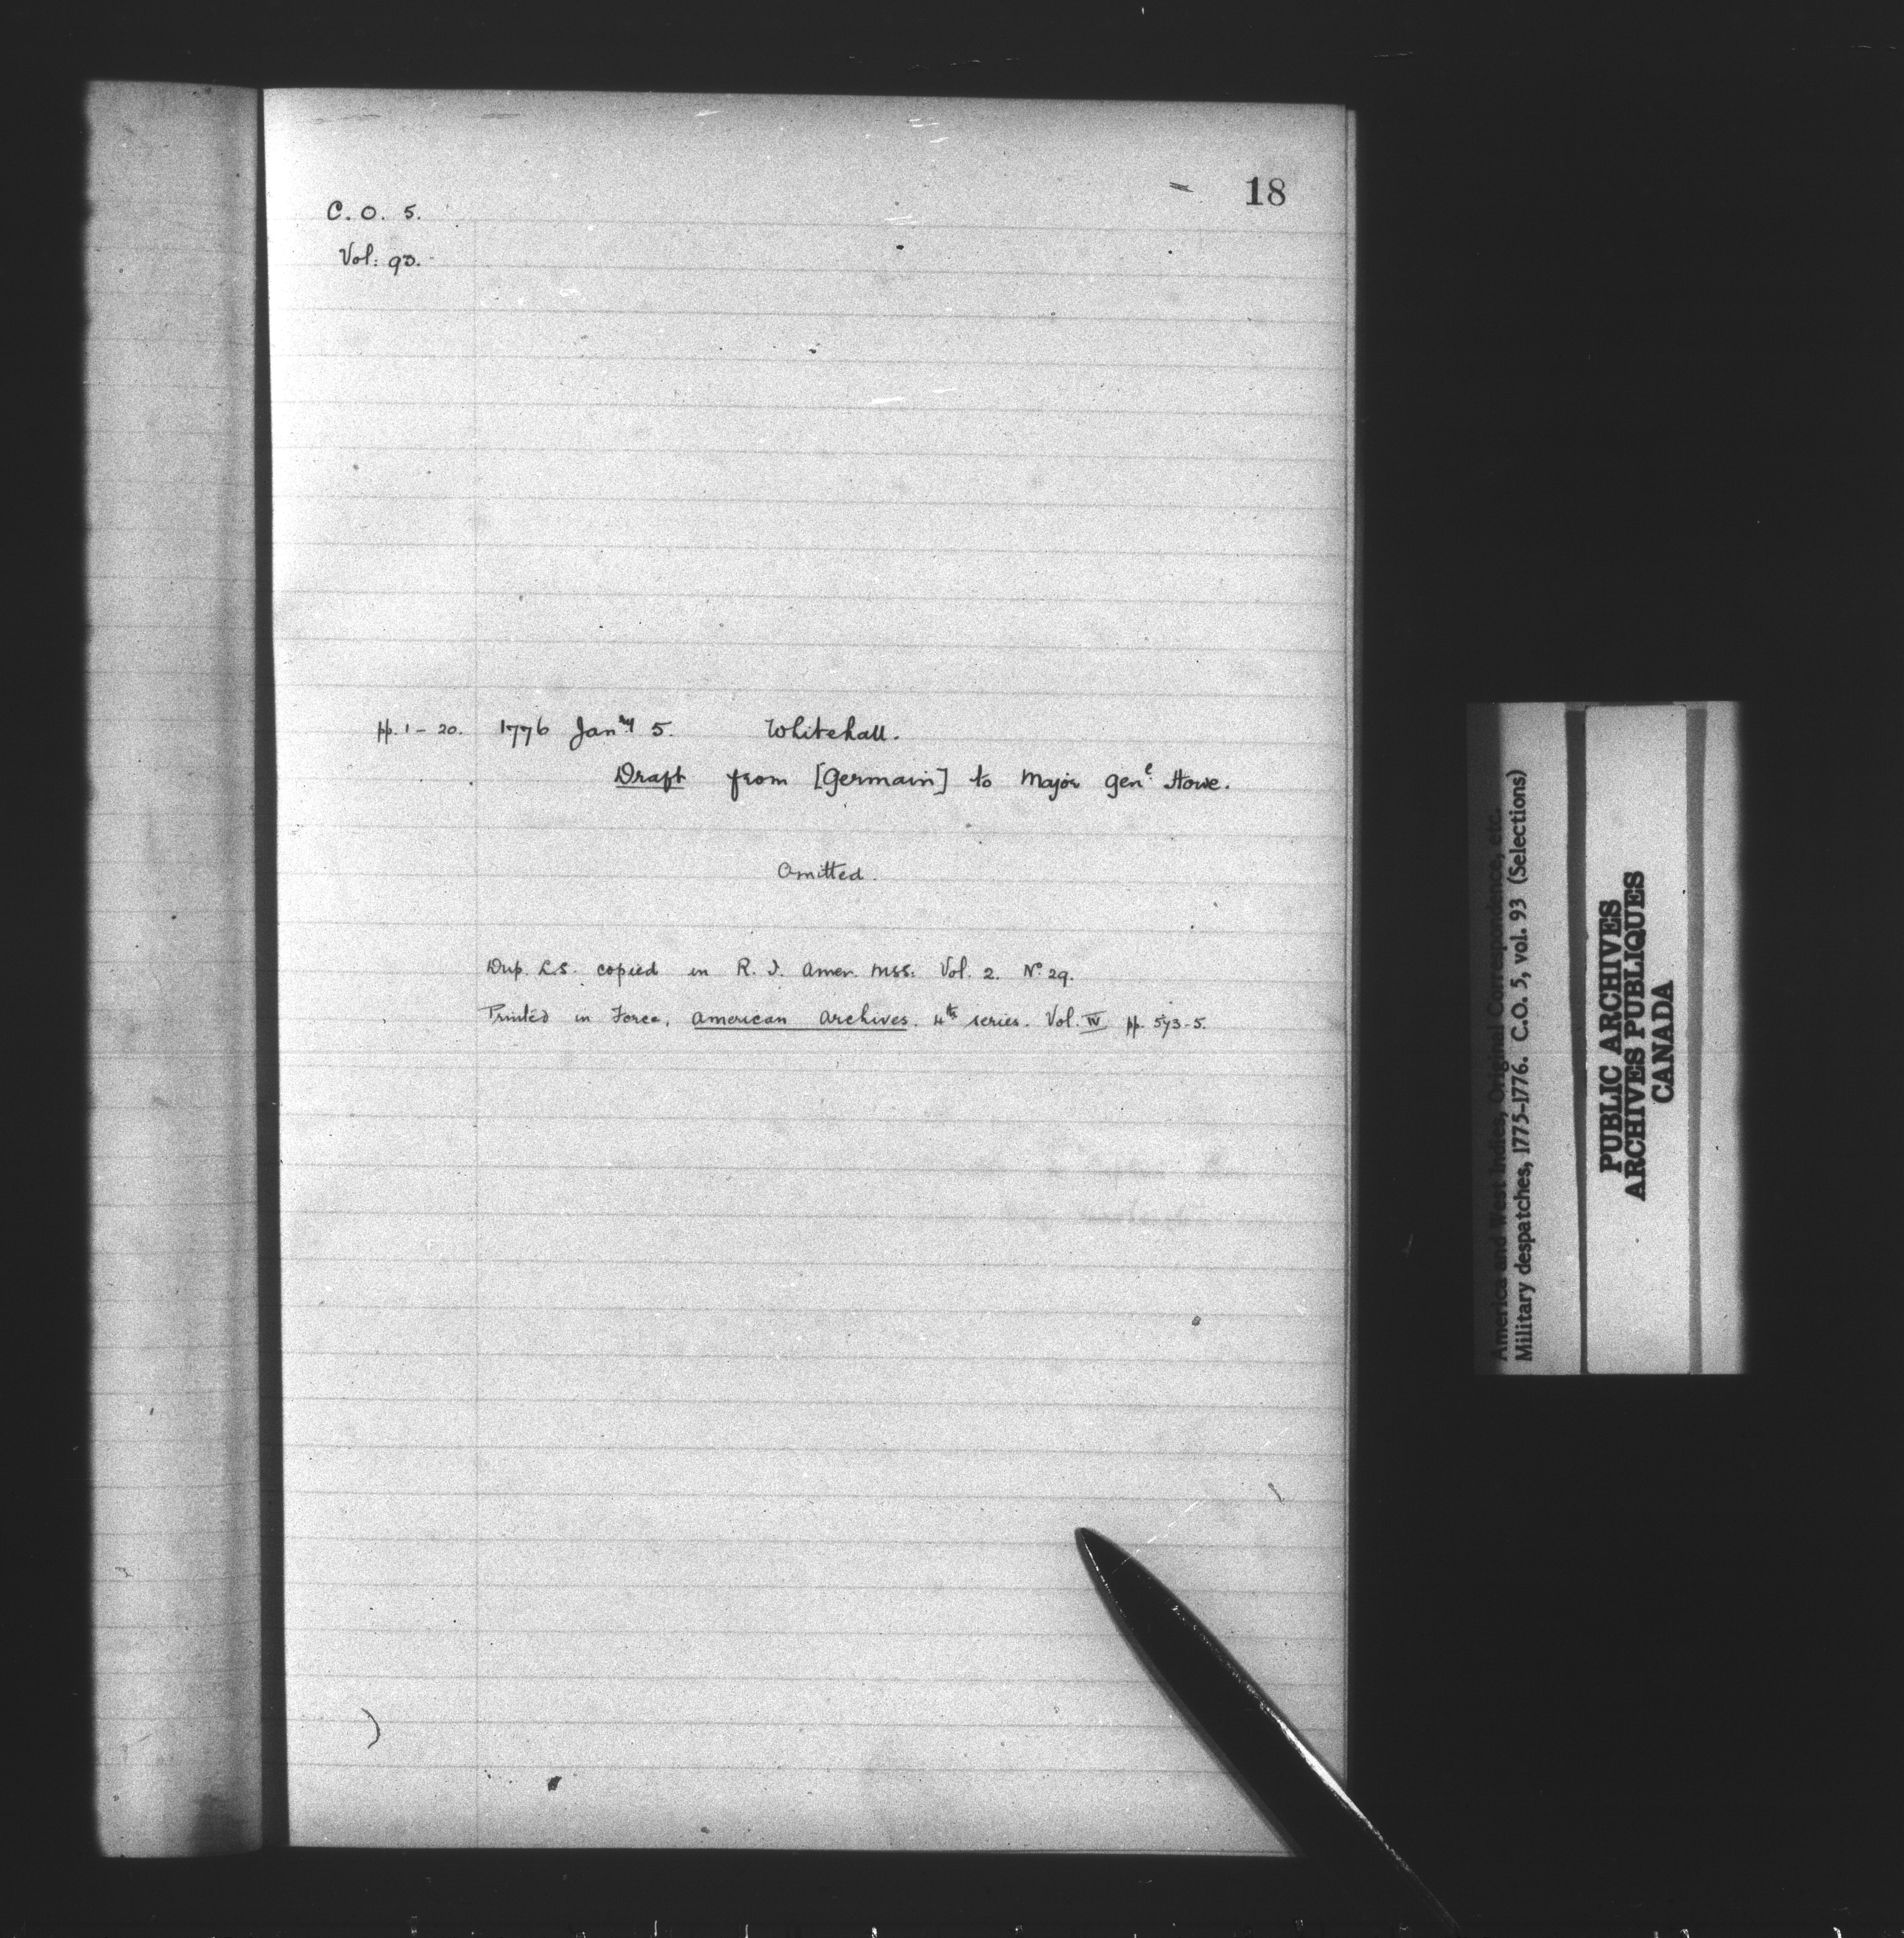 18
C. O. 5.
Vol: 93.
pp. 1 - 20. 1776 Janry 5. Whitehall.
Draft from [Germain] to Major Genl Howe.
Omitted.
Dup. L.S. copied in R. I. Amer. MSS. Vol. 2. No. 29.
Printed in Force, American Archives. 4th series. Vol. IV pp. 573-5.
America and West Indies, Original Correspondence, etc.
Military despatches, 1775-1776. C.O. 5, vol. 93 (Selections)
PUBLIC ARCHIVES
ARCHIVES PUBLIQUES
CANADA